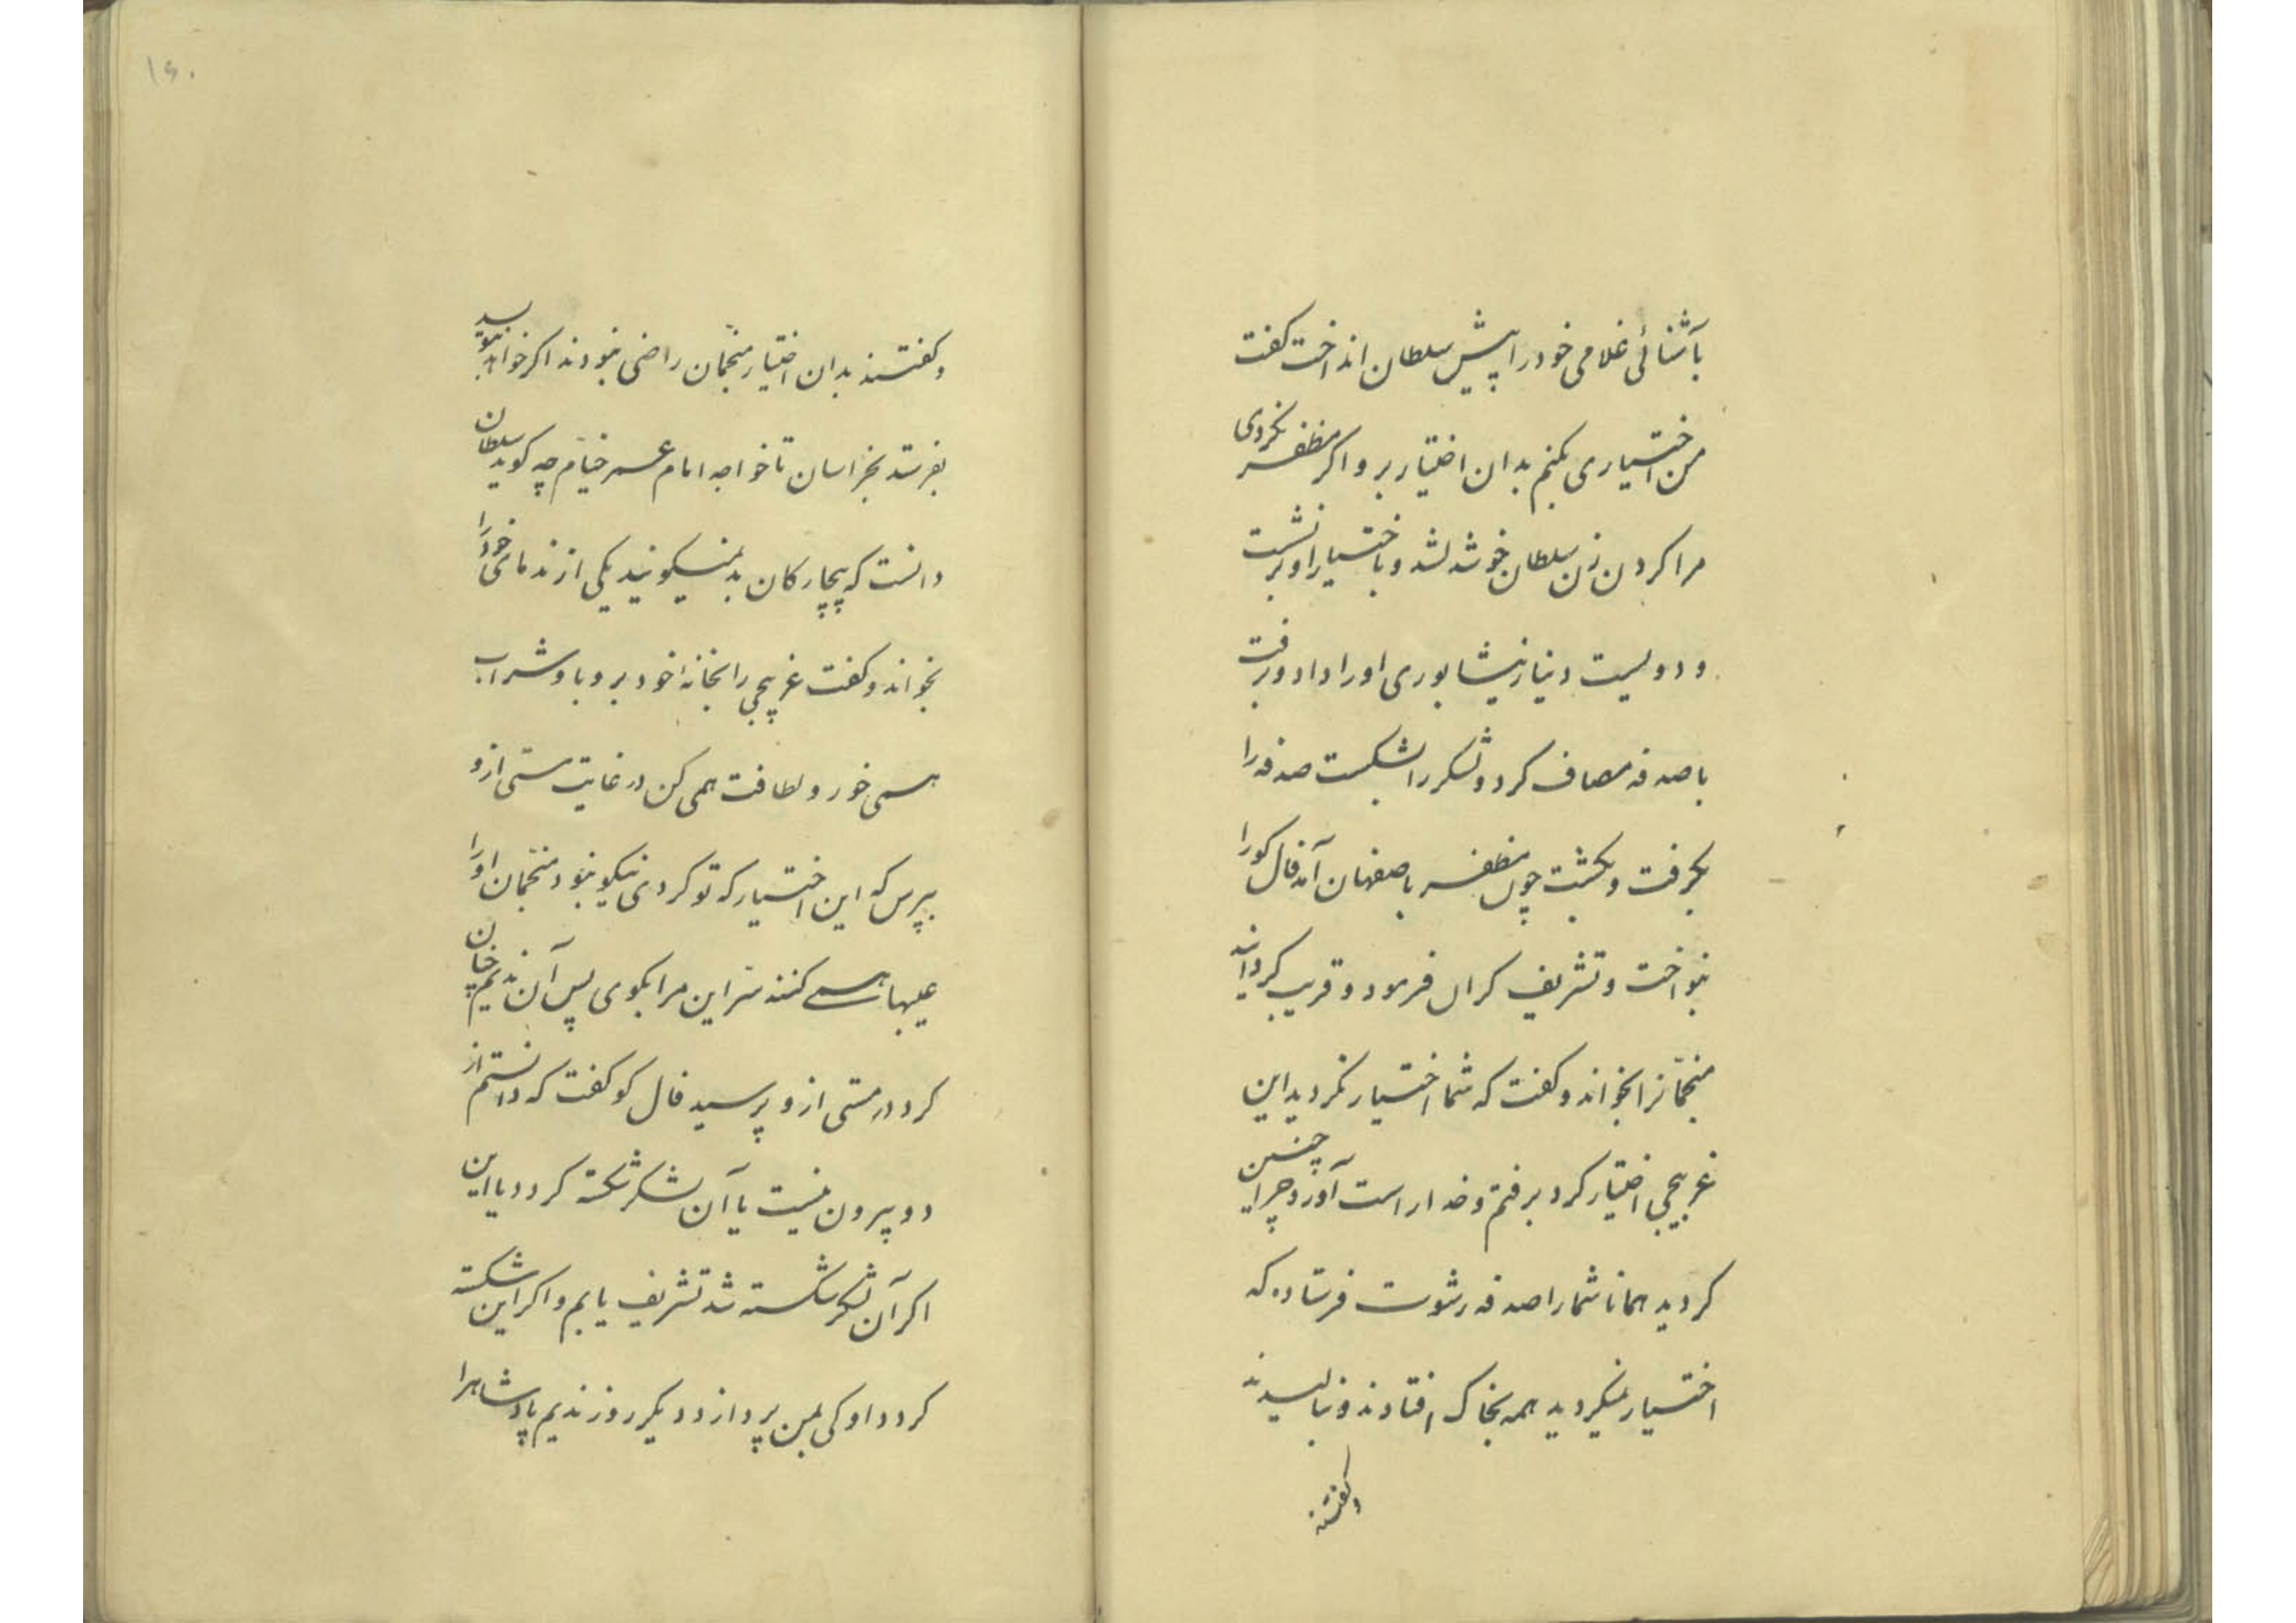 بآشنائی غلامی خود را پیش سلطان انداخت کفت
من اختیاری بکنم بدان اختیار برو اکر مظفر نکردی
مرا کردن زن سلطان خوشدلشد و باختیار او برنشست
و دویست دینار نیشابوری اورا داد و برفت
با صدفه مصاف کرد و لشکر را بشکست صدفه را
بکرفت و بکشت چون مظفر باصفهان آمد فال کورا
بنواخت و تشریف کران فرمود و قریب کردانید
منجمّانرا بخواند و کفت که شما اختیار نکردید این
غریبچی اختیار کرد برفتم و خدا راست آورد چرا چنین
کردید همانا شمارا صدفه رشوت فرستاده که
اختیار نمیکردید همه بخاک افتادند و بنالیدند
و کفتند
۱۶۰
و کفتند بدان اختیار منجّمان راضی نبودند اکر خواهد بنویسد
بفرستد بخراسان تا خواجه امام عمر خیّام چه کوید سلطان
دانست که بیچارکان بد نمیکویند یکی از ندمای خود را
بخواند و کفت غریبچی را بخانهٔ خود بر و با او شراب
همی خور و لطافت همی کن در غایت مستی ازو
بپرس که این اختیار که تو کردی نیکو نبود منجّمان اورا
عیبها همی کنند سرّ این مرا بکوی پس آن ندیم چنان
کرد در مستی ازو پرسید فال کو کفت که دانستم از
دو بیرون نیست یا آن لشکر شکسته کردد یا این
اکر آن لشکر شکسته شد تشریف یابم و اکر این شکسته
کردد او کی بمن پردازد دیکر روز ندیم پادشاه را